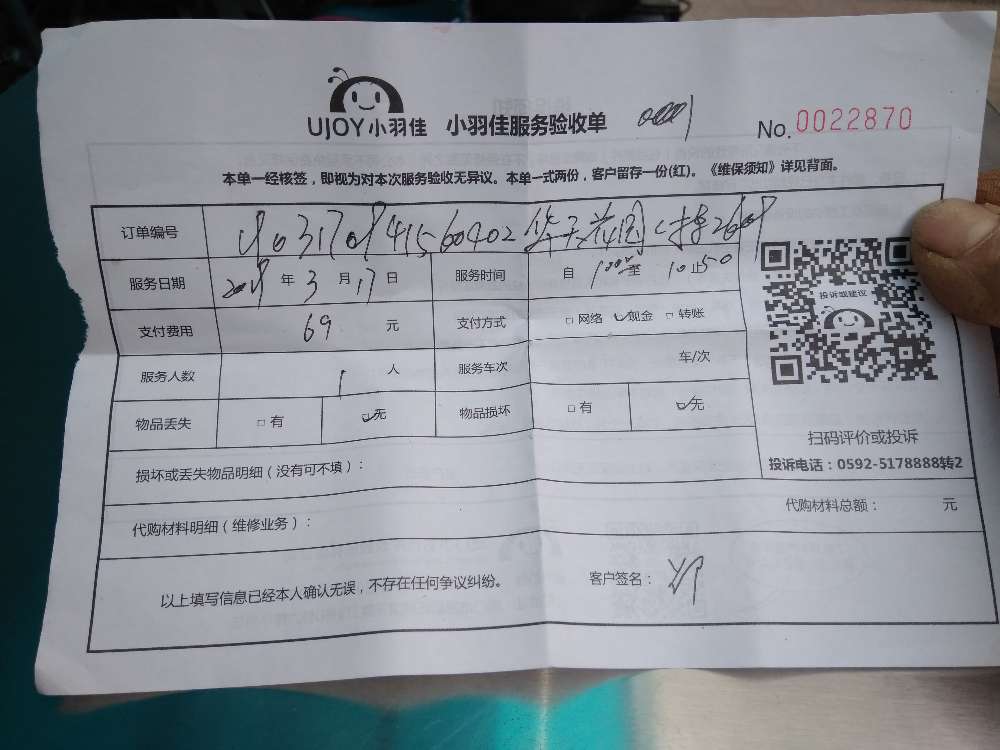 UJOY小羽佳 小羽佳服务验收单
No. 0022870
本单一经核签，即视为对本次服务验收无异议。本单一式两份，客户留存一份(红)。《维保须知》详见背面。
订单编号
服务日期 年 3 月 17 日 服务时间 自 至 10 止 50
支付费用 69 元 支付方式 □ 网络 ☑现金 □ 转账
服务人数 1 人 服务车次 车/次
物品丢失 □ 有 ☑无 物品损坏 □ 有 ☑无
投诉或建议
扫码评价或投诉
投诉电话：0592-5178888转2
损坏或丢失物品明细（没有可不填）：
代购材料明细（维修业务）： 代购材料总额： 元
以上填写信息已经本人确认无误，不存在任何争议纠纷。 客户签名：